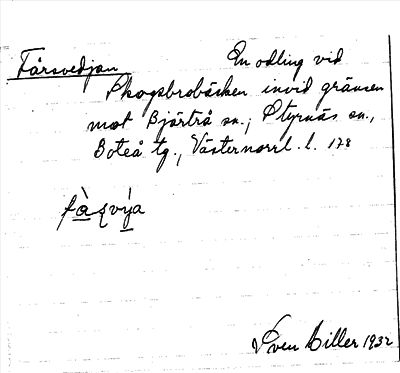 Fårsvedjan En odling vid
Skogsbrobäcken invid gränsen
mot Bjärtrå sn., Styrnäs sn.,
Boteå tg., Västernorrl. l. 178
Sven Hiller 1932